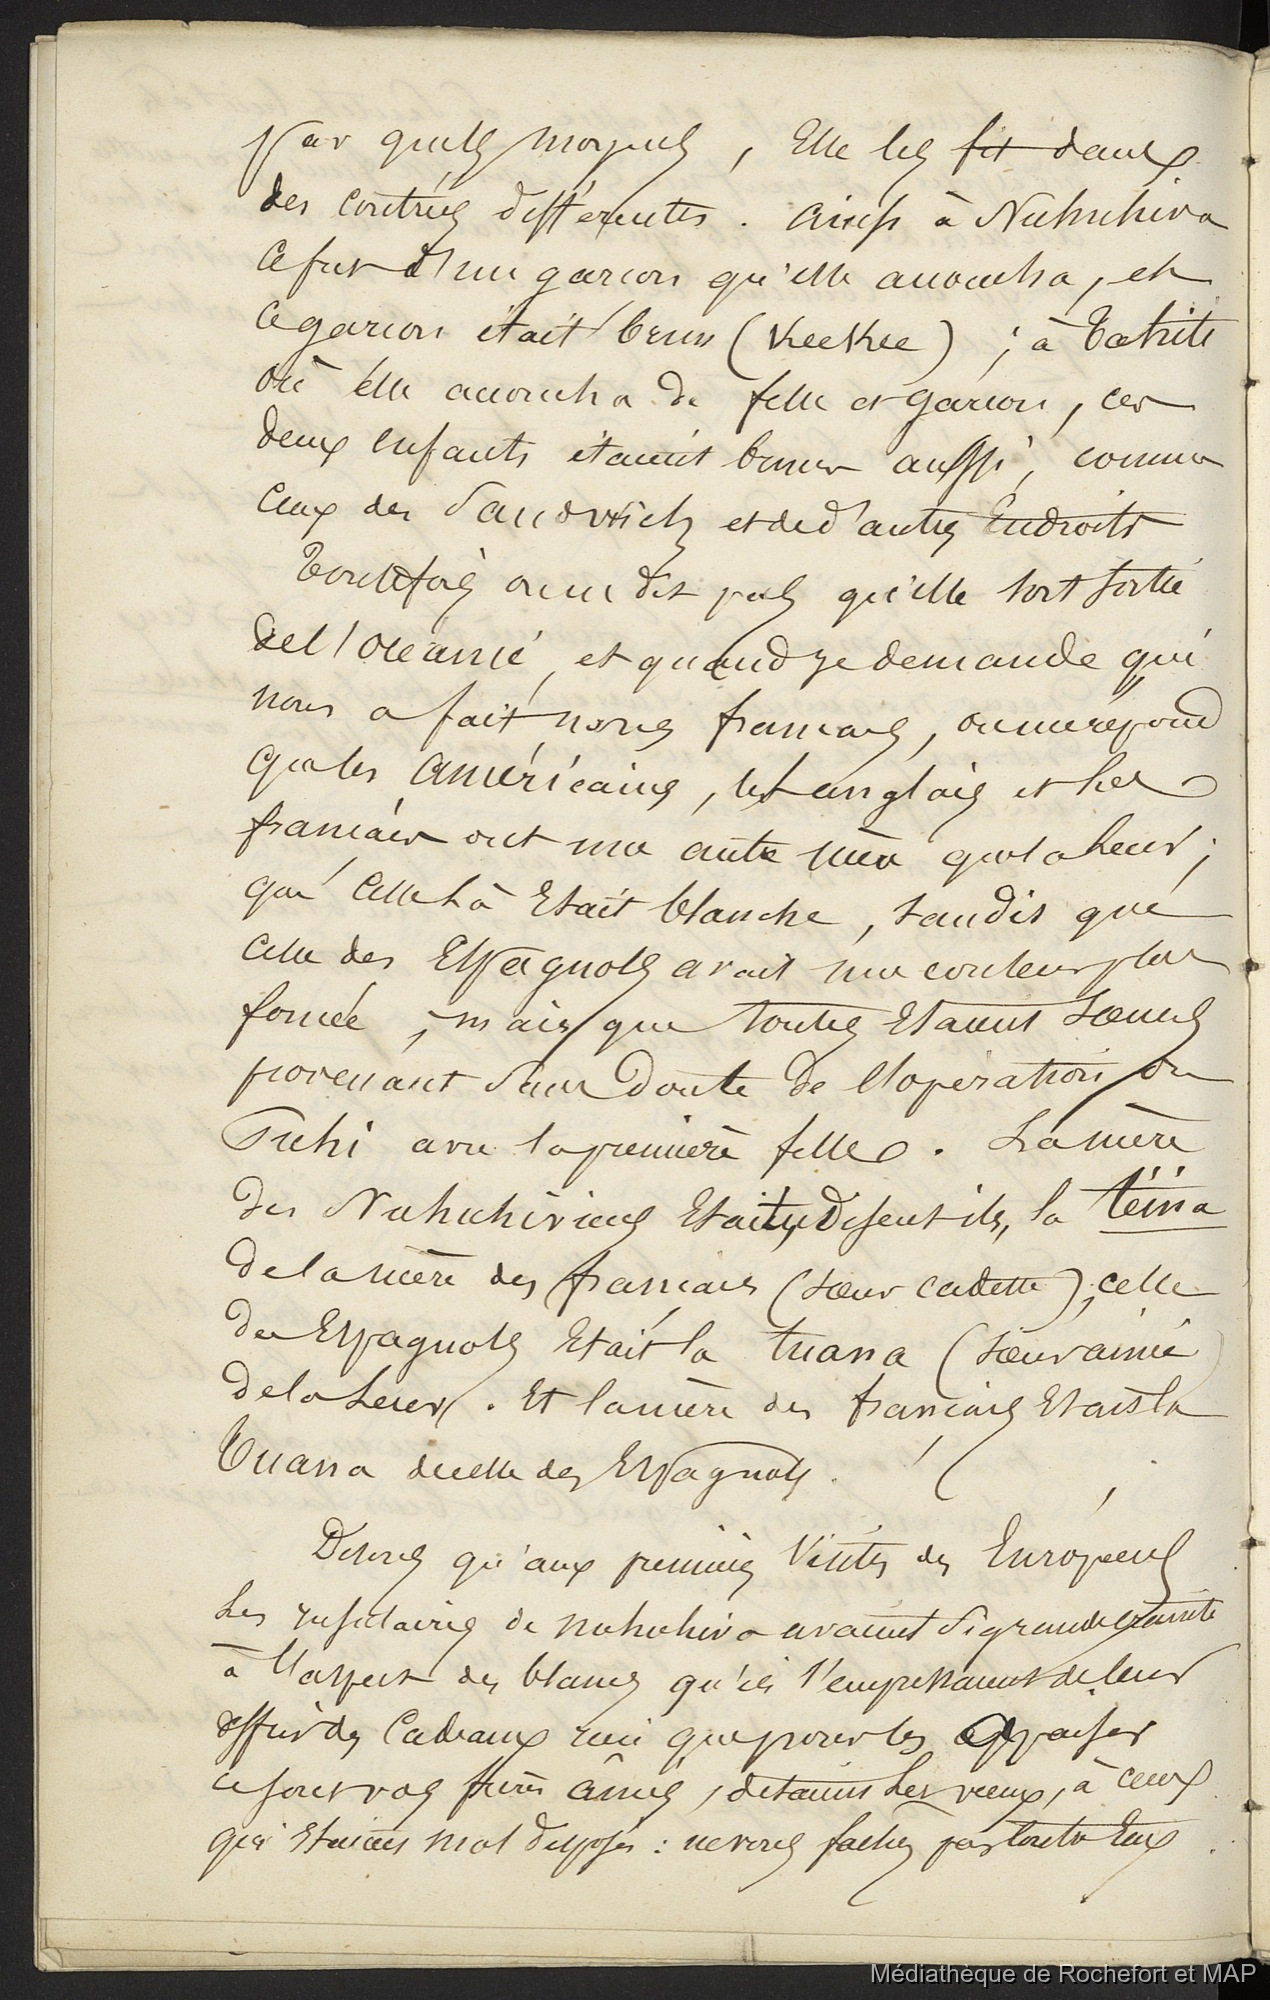 par quels moyens, Elle les fit dans
des contrées différentes. ainsi à Nukuhiva
ce fut d'un garcon qu'elle accoucha, et
ce garcon était brun (KeeKee) ; à Tahiti
où elle accoucha de fille et garcon, ces
deux enfants étaient bruns aussi, comme
ceux des Sandwich et de d'autres Endroits
Toutefois on ne dit pas qu'elle soit sortie
de l'Océanie, et quand je demande qui
nous a fait nous francais, on me répond
que les américains, les anglais et les
francais ont une autre mère que la leur ;
que celle là Etait blanche, tandis que
celle des Espagnols avait une couleur plus
foncée ; mais que toutes Etaient soeurs
provenant sans doute de l'opération de
Tiki avec la première fille. La mère
des Nukuhiviens Etait, disent-ils, la teina
de la mère des francais (soeur cadette), celle
des Espagnols Etait la tuana (soeur ainée)
de la leur. Et la mère des francais Etait la
Tuana de celle des Espagnols.
Disons qu'aux premières visites des Européens
Les insulaires de nukuhiva avaient si grande crainte
à l'aspect des blancs qu'ils s'empressaient de leur
offrir des Cadeaux rien que pour les appaiser
ce sont vos frères ainés, disaient les vieux, à ceux
qui Etaient mal disposés : ne vous fachez pas contre Eux
Médiathèque de Rochefort et MAP